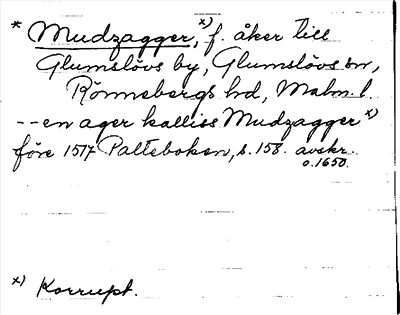 * Mudzagger, x) f. åker till
Glumslövs by, Glumslövs sn,
Rönnebergs hd, Malm. l.
-- en ager kalliss Mudzagger x)
före 1517 Palteboken, s. 158. avskr.
o. 1650.
x) Korrupt.